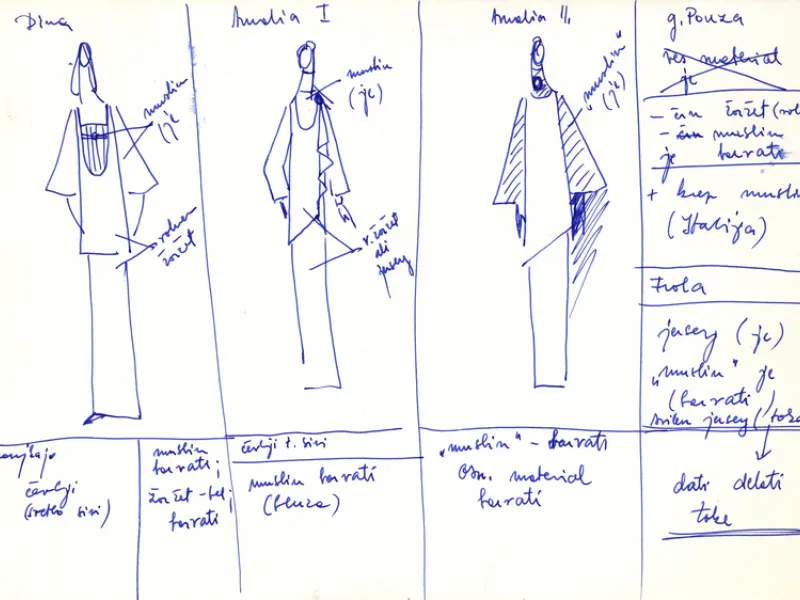 Dina
muslin
(je
rohen
žoržet
čevlji
(svetlo sivi)
muslin
barvati;
žoržet - bel;
barvati
Amalia I
muslin
(je)
r. žoržet
ali
jersey
čevlji t. sivi
muslin barvati
(bluza)
Amalia II.
„muslin"
(je)
„muslin" - barvati
osn. material
barvati
g. Pouza
ves material
je
- črn žoržet
- črn muslin
je barvati
+ krep muslin
(Italija)
jersey (je)
„muslin" je
(barvati)
jersey
dati delati